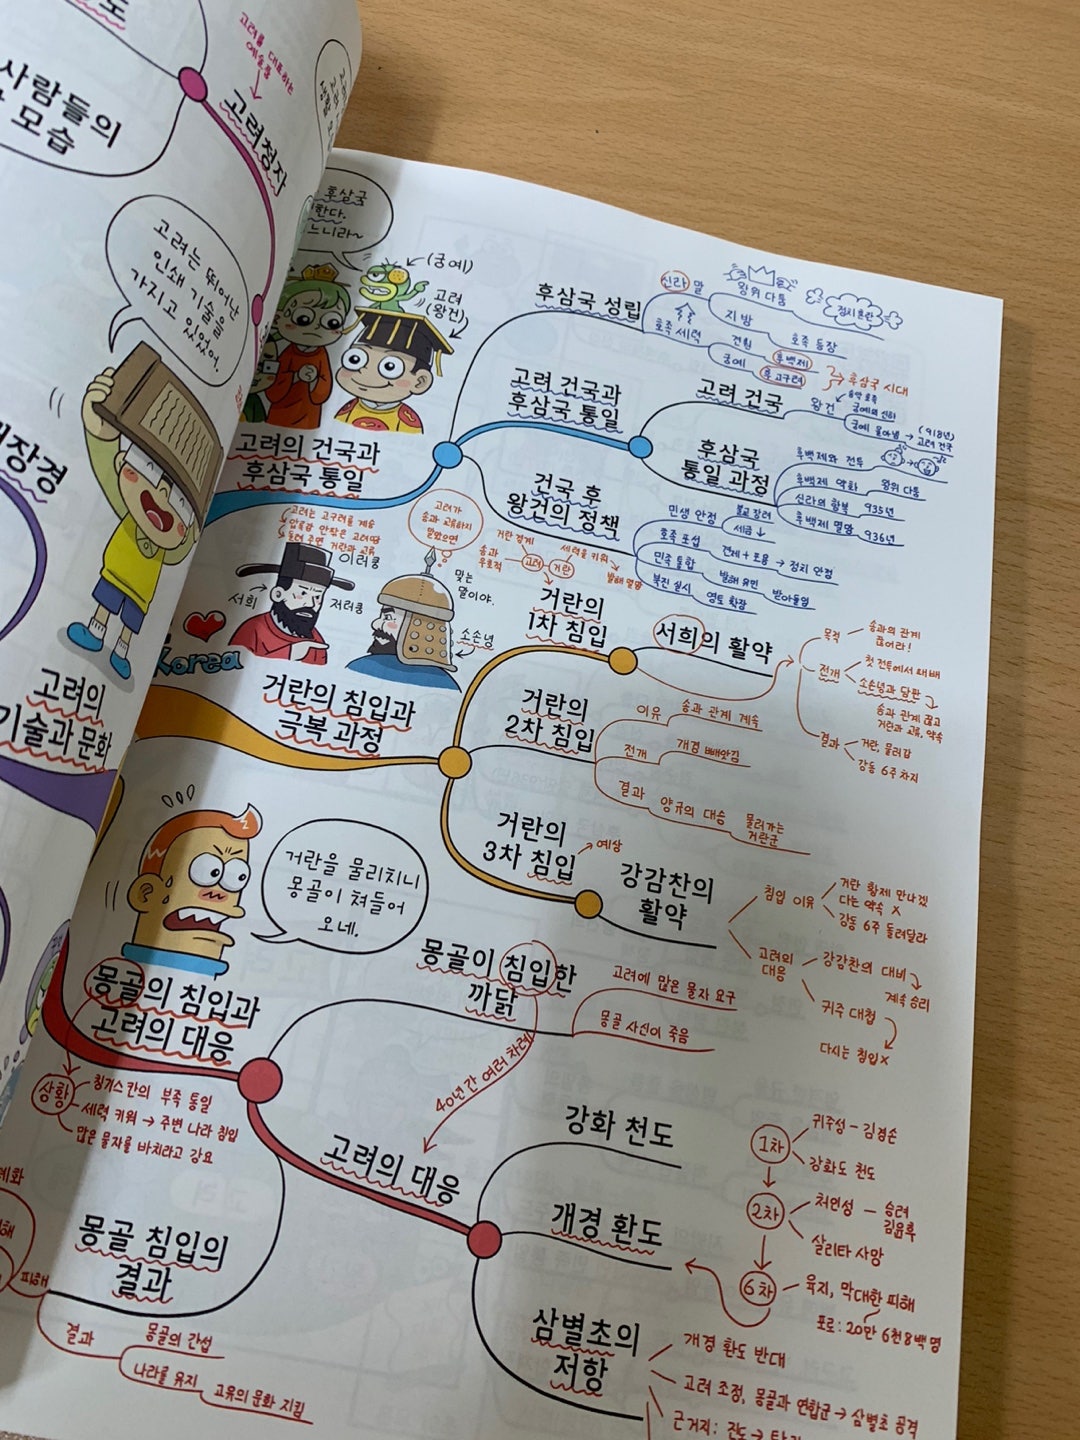 도
사람들의
모습
고려를 대표하는
예술품
고려청자
고려는 뛰어난
인쇄 기술을
가지고 있었어.
대장경
고려의
기술과 문화
후삼국
한다.
느니라~
(궁예)
고려
(왕건)
고려의 건국과
후삼국 통일
후삼국 성립
신라 말
왕위 다툼
정치혼란
지방
호족 등장
호족 세력
견훤
후백제
궁예
후고구려
후삼국 시대
고려 건국과
후삼국 통일
고려 건국
왕건
송악 호족
궁예의 신하
궁예 몰아냄 → 고려 건국
(918년)
후삼국
통일 과정
후백제와 전투
후백제 약화
왕위 다툼
신라의 항복
935년
후백제 멸망
936년
건국 후
왕건의 정책
민생 안정
불교 장려
세금↓
호족 포섭
견제+포용 → 정치 안정
민족 통합
발해 유민
받아들임
북진 실시
영토 확장
고려는 고구려를 계승
압록강 안쪽은 고려땅
돌려 주면 거란과 교류
이러쿵
저러쿵
서희
고려가
송과 교류하지
않았으면
맞는
말이야.
소손녕
Korea
거란 경계
송과
우호적
고려
거란
세력을 키워
발해 멸망
거란의 침입과
극복 과정
거란의
1차 침입
서희의 활약
목적
송과의 관계
끊어라!
전개
첫 전투에서 패배
소손녕과 담판
송과 관계 끊고
거란과 교류, 약속
결과
거란, 물러감
강동 6주 차지
거란의
2차 침입
이유
송과 관계 계속
전개
개경 빼앗김
결과
양규의 대승
물러가는
거란군
거란의
3차 침입
예상
강감찬의
활약
침입 이유
거란 황제 만나겠
다는 약속 X
강동 6주 돌려달라
고려의
대응
강감찬의 대비
계속 승리
귀주 대첩
다시는 침입X
거란을 물리치니
몽골이 쳐들어
오네.
몽골의 침입과
고려의 대응
상황
칭기즈칸의 부족 통일
세력 키워 → 주변 나라 침입
많은 물자를 바치라고 강요
몽골이 침입한
까닭
고려에 많은 물자 요구
몽골 사신이 죽음
40년간 여러 차례
고려의 대응
강화 천도
개경 환도
삼별초의
저항
1차
귀주성 - 김경손
강화도 천도
2차
처인성 - 승려
김윤후
살리타 사망
6차
육지, 막대한 피해
포로: 20만 6천8백 명
개경 환도 반대
고려 조정, 몽골과 연합군 → 삼별초 공격
근거지: 진도 →
몽골 침입의
결과
피해
결과
몽골의 간섭
나라를 유지
고유의 문화 지킴